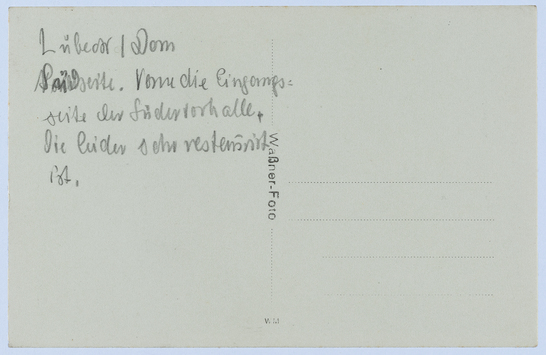 Lübeck / Dom
Südseite. Vorne die Eingangs=
seite der Südervorhalle,
die leider sehr restauriert
ist.
Waßner-Foto